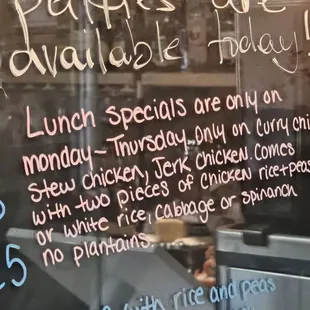 Patties are
available today!
Lunch Specials are only on
monday-Thursday. Only on Curry chi
Stew chicken, Jerk chicken. Comes
with two pieces of chicken rice+peas
or white rice, Cabbage or spinanch
no plantains.
5
with rice and peas